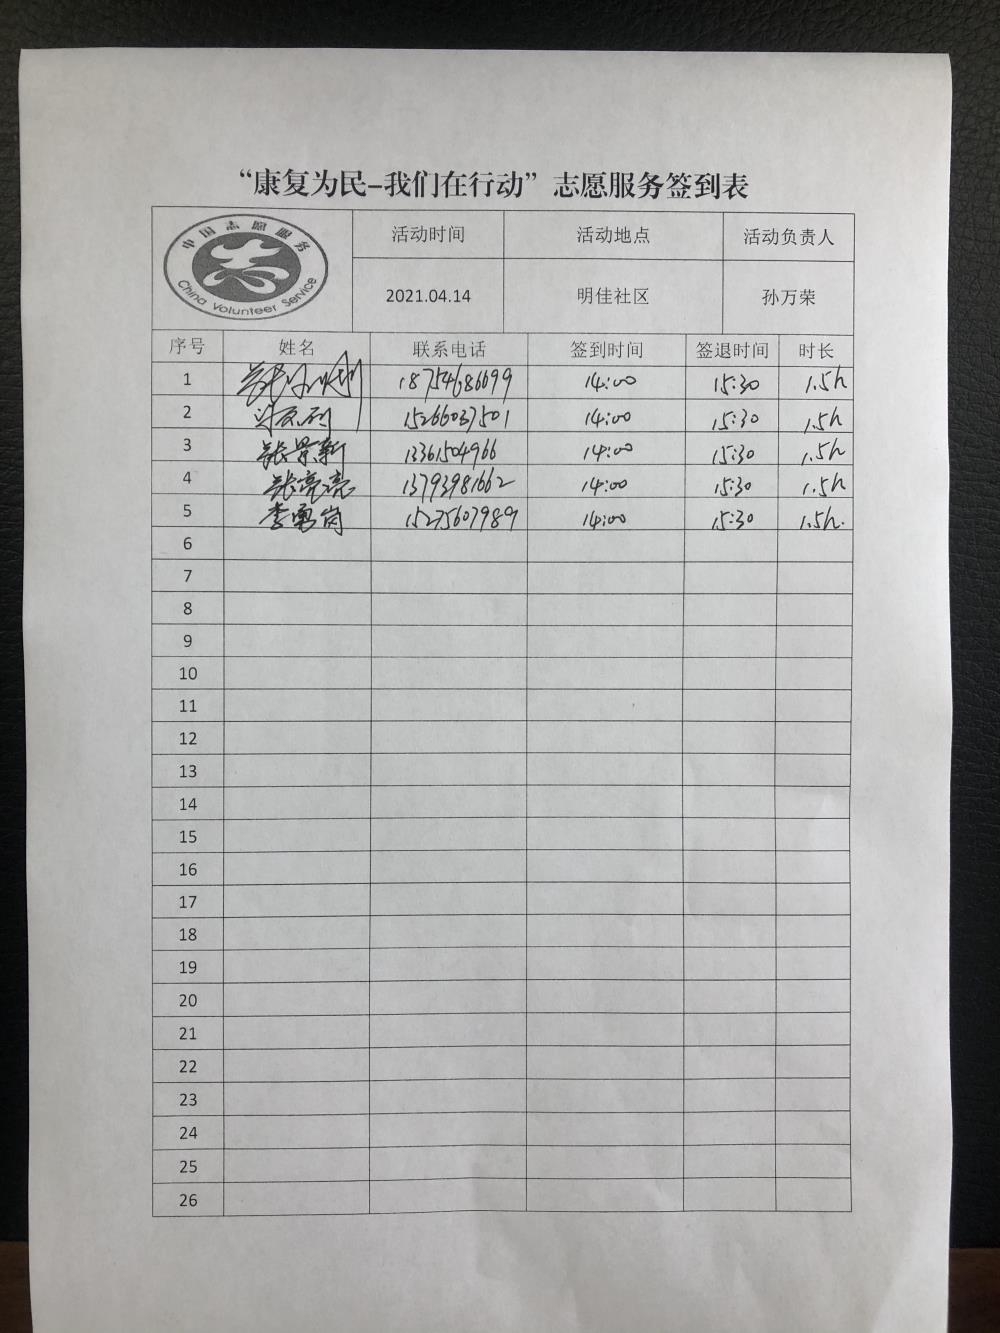 “康复为民-我们在行动”志愿服务签到表
中国志愿服务
China Volunteer Service
活动时间 活动地点 活动负责人
2021.04.14 明佳社区 孙万荣
序号 姓名 联系电话 签到时间 签退时间 时长
1 18754686699 14:00 15:30 1.5h
2 15266037501 14:00 15:30 1.5h
3 张景新 13361504966 14:00 15:30 1.5h
4 张亮亮 13793981662 14:00 15:30 1.5h
5 李勇岗 15275607989 14:00 15:30 1.5h.
6
7
8
9
10
11
12
13
14
15
16
17
18
19
20
21
22
23
24
25
26